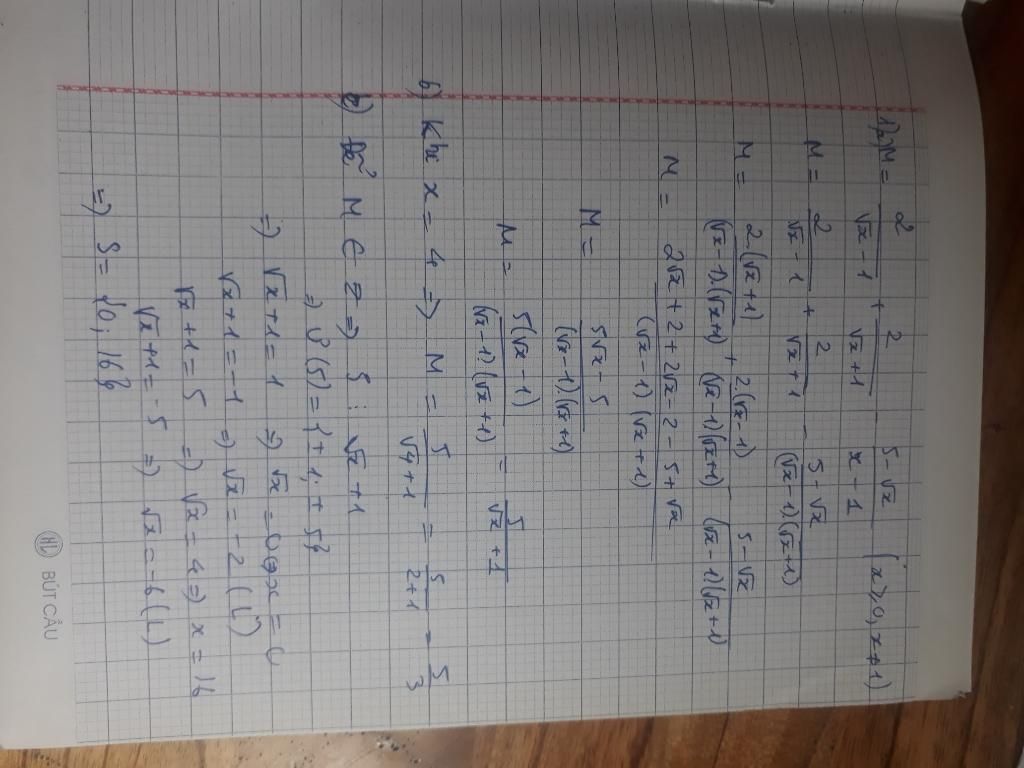 1) a) M = 2/(√x - 1) + 2/(√x + 1) - (5 - √x)/(x - 1) (x ≥ 0, x ≠ 1)
M = 2/(√x - 1) + 2/(√x + 1) - (5 - √x)/((√x - 1)(√x + 1))
M = 2.(√x + 1)/((√x - 1).(√x + 1)) + 2(√x - 1)/((√x - 1)(√x + 1)) - (5 - √x)/((√x - 1)(√x + 1))
M = (2√x + 2 + 2√x - 2 - 5 + √x)/((√x - 1)(√x + 1))
M = (5√x - 5)/((√x - 1).(√x + 1))
M = 5(√x - 1)/((√x - 1)(√x + 1)) = 5/(√x + 1)
b) Khi x = 4 => M = 5/(√4 + 1) = 5/(2 + 1) = 5/3
c) M ∈ Z => 5 ⋮ √x + 1
=> Ư(5) = {± 1; ± 5}
=> √x + 1 = 1 => √x = 0 => x = 0
√x + 1 = -1 => √x = -2 (L)
√x + 1 = 5 => √x = 4 => x = 16
√x + 1 = -5 => √x = -6 (L)
=> S = {0; 16}
HL BÚT CẦU